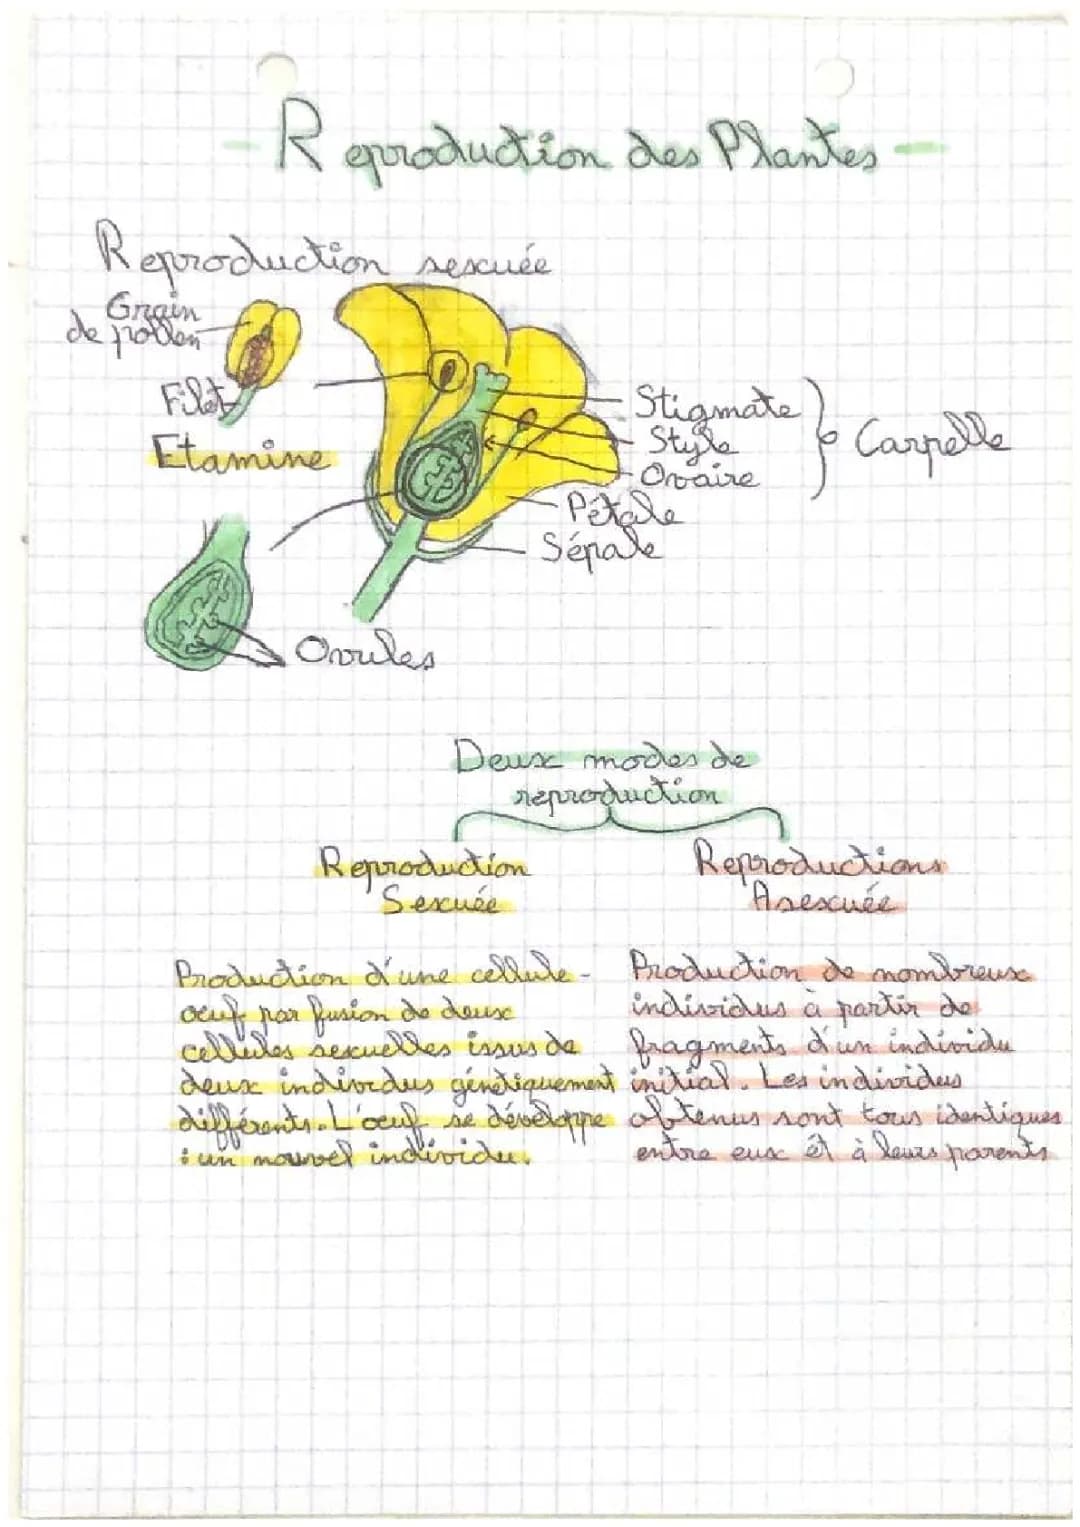 - Reproduction des Plantes -
Reproduction sexuée
Grain
de pollen
Filet
Etamine
Stigmate
Style
Ovaire
Carpelle
Pétale
Sépale
Ovules
Deux modes de
reproduction
Reproduction
Sexuée
Production d'une cellule-
œuf par fusion de deux
cellules sexuelles issus de
deux individus génétiquement
différents. L'œuf se développe
: un nouvel individu.
Reproductions
Asexuée
Production de nombreux
individus à partir de
fragments d'un individu
initial. Les individus
obtenus sont tous identiques
entre eux et à leurs parents